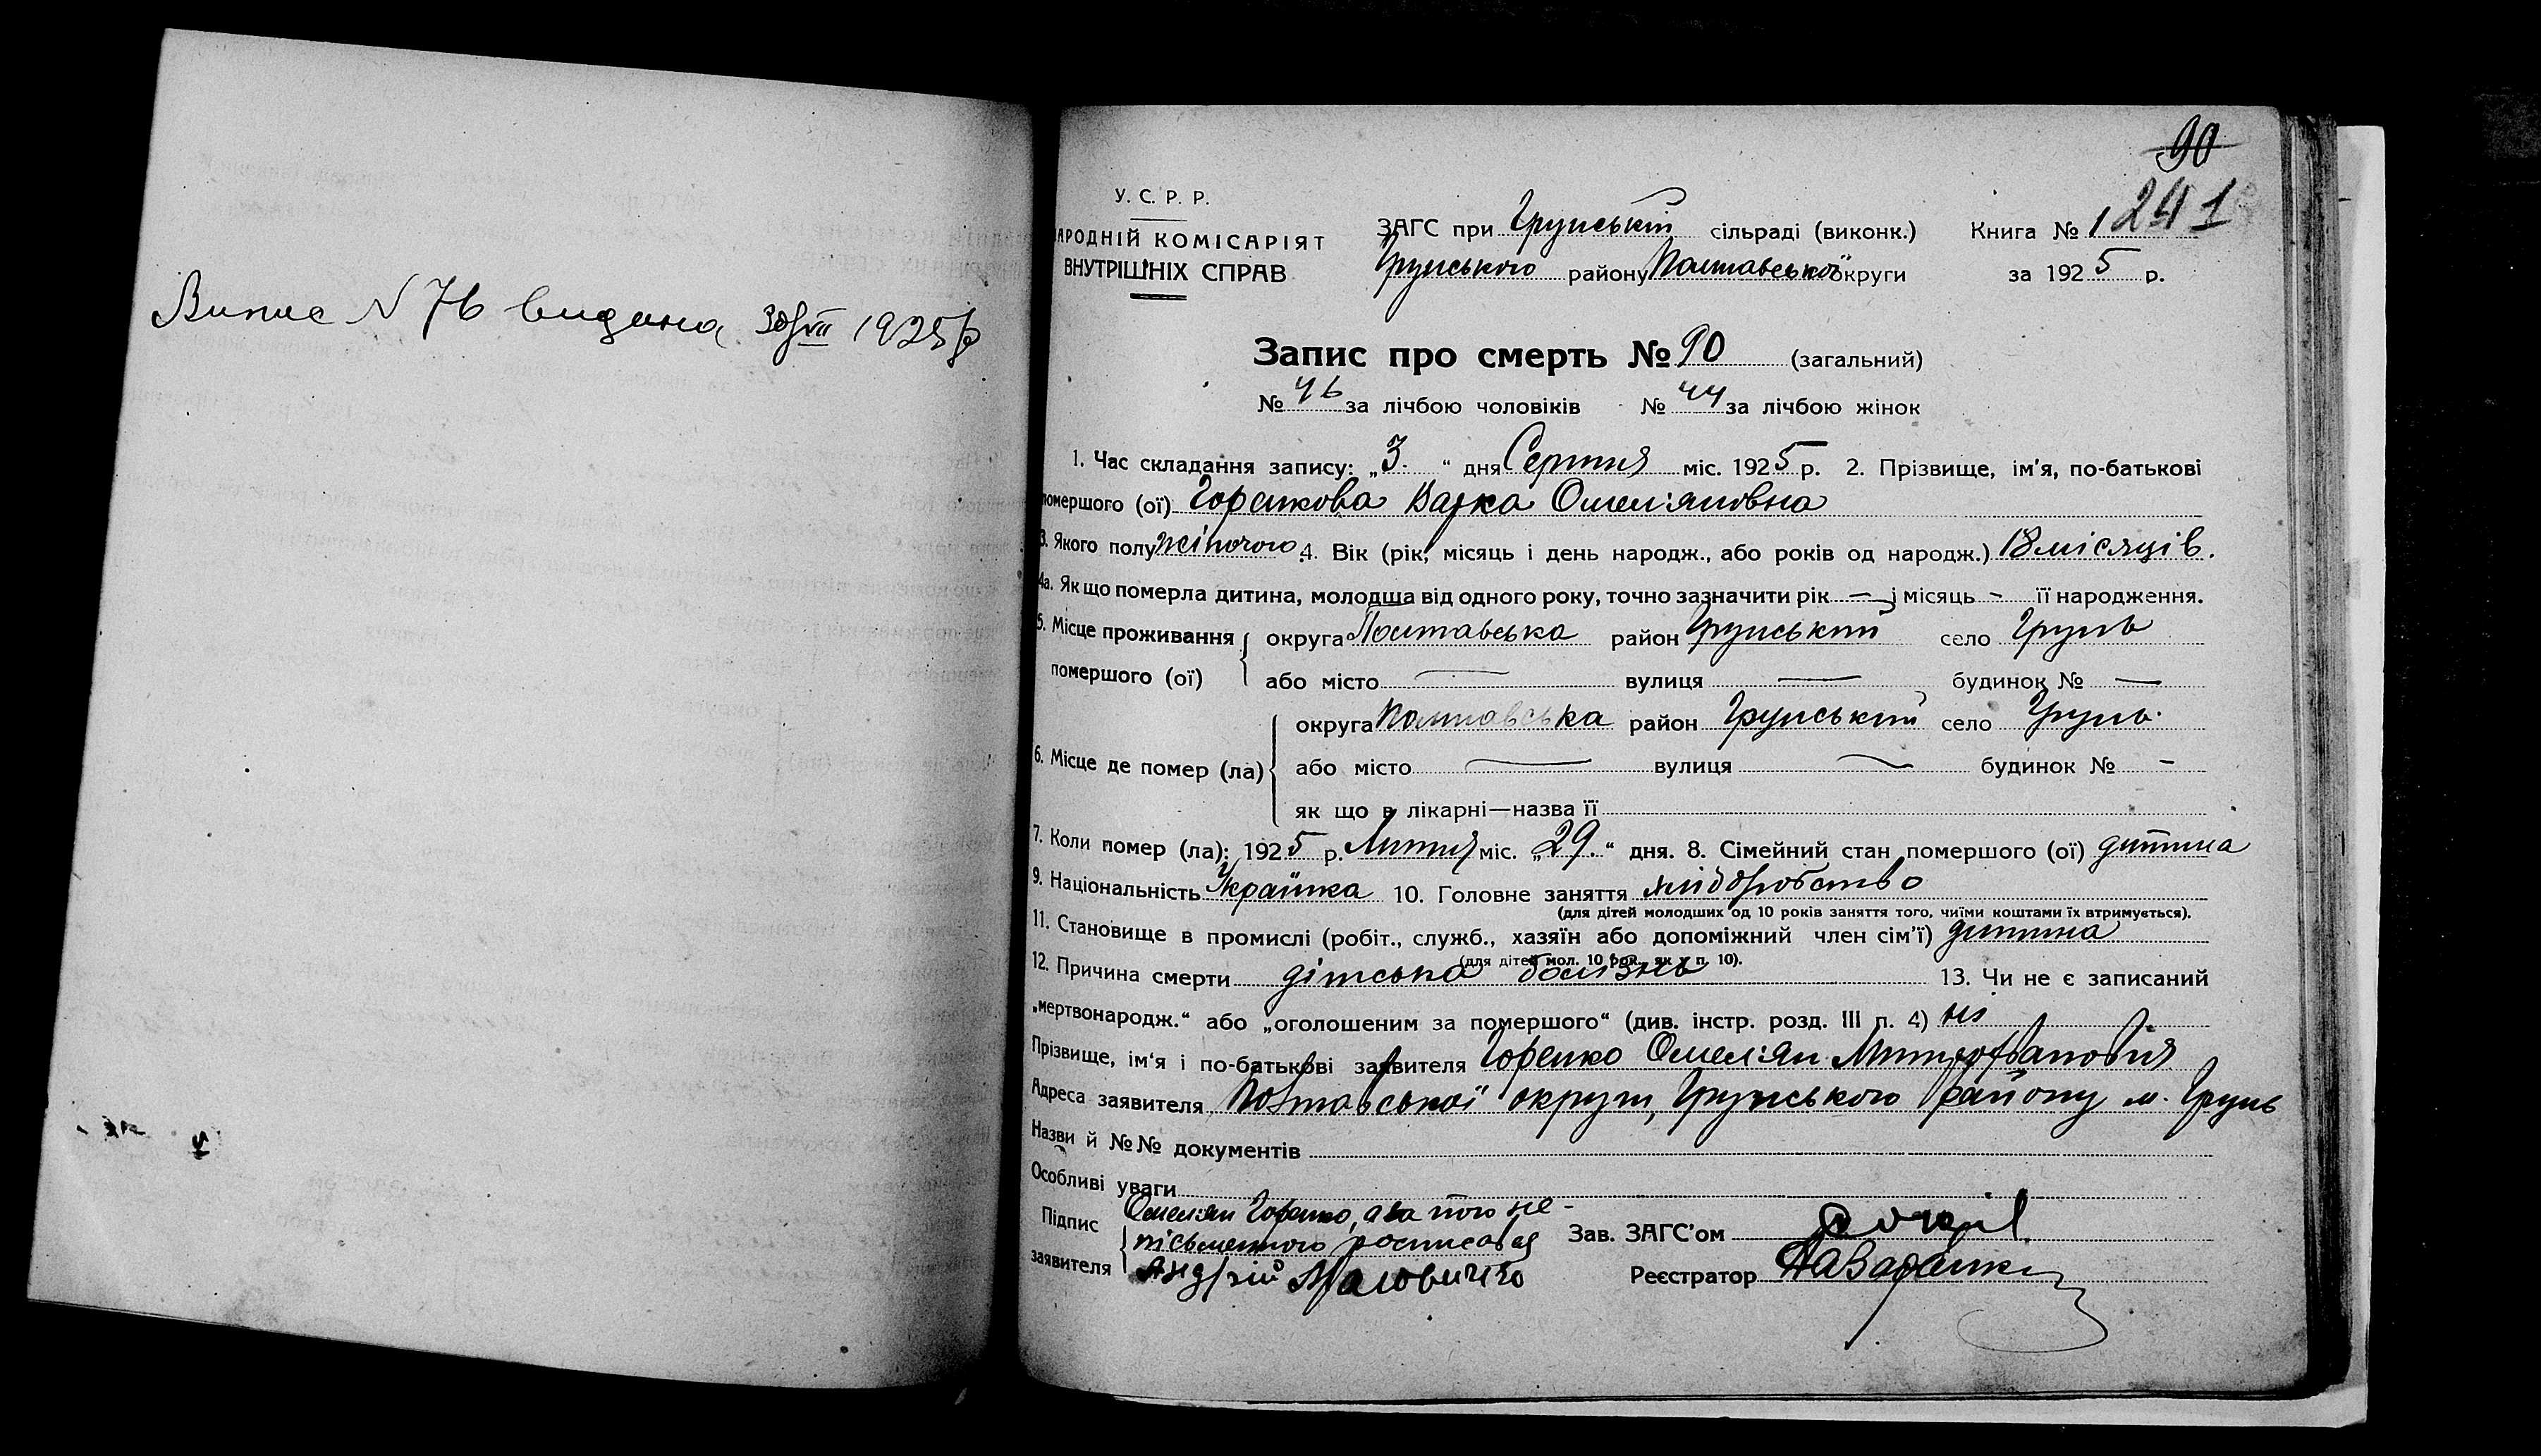 Випис N 76 видана 30/VII 1925 р
90
241
У. С. Р. Р.
АРОДНІЙ КОМІСАРІЯТ
ВНУТРІШНІХ СПРАВ
ЗАГС при Грунській сільраді (виконк.) Книга № 1
Грунського району Полтавської округи за 1925 р.
Запис про смерть № 90 (загальний)
№ 46 за лічбою чоловіків № 44 за лічбою жінок
1. Час складання запису: „3." дня Серпня міс. 1925 р. 2. Прізвище, ім'я, по-батькові
помершого (ої) Варка Омеляновна
3. Якого полу жіночого 4. Вік (рік, місяць і день народж., або років од народж.) 18 місяців.
4а. Як що померла дитина, молодша від одного року, точно зазначити рік — і місяць - її народження.
5. Місце проживання помершого (ої) округа Полтавська район Грунський село Грунь
або місто — вулиця — будинок № —
6. Місце де помер (ла) округа Полтавська район Грунський село Грунь.
або місто — вулиця — будинок № -
як що в лікарні—назва її
7. Коли помер (ла): 1925 р. Липня міс. „29." дня. 8. Сімейний стан помершого (ої) дитина
9. Національність Українка 10. Головне заняття хліборобство
(для дітей молодших од 10 років заняття того, чиїми коштами їх втримується).
11. Становище в промислі (робіт., служб., хазяїн або допоміжний член сім'ї) дитина
(для дітей мол. 10 рок. як у п. 10).
12. Причина смерти дітська болізнь 13. Чи не є записаний
„мертвонародж." або „оголошеним за помершого" (див. інстр. розд. III п. 4) ні
Прізвище, ім'я і по-батькові заявителя Горенко Омелян Митрофанович
Адреса заявителя Полтавської округи, Грунського району м. Грунь
Назви й №№ документів
Особливі уваги
Підпис заявителя Омелян Горенко, а за його не-
письменного росписався
Андрій
Зав. ЗАГС'ом
Реєстратор